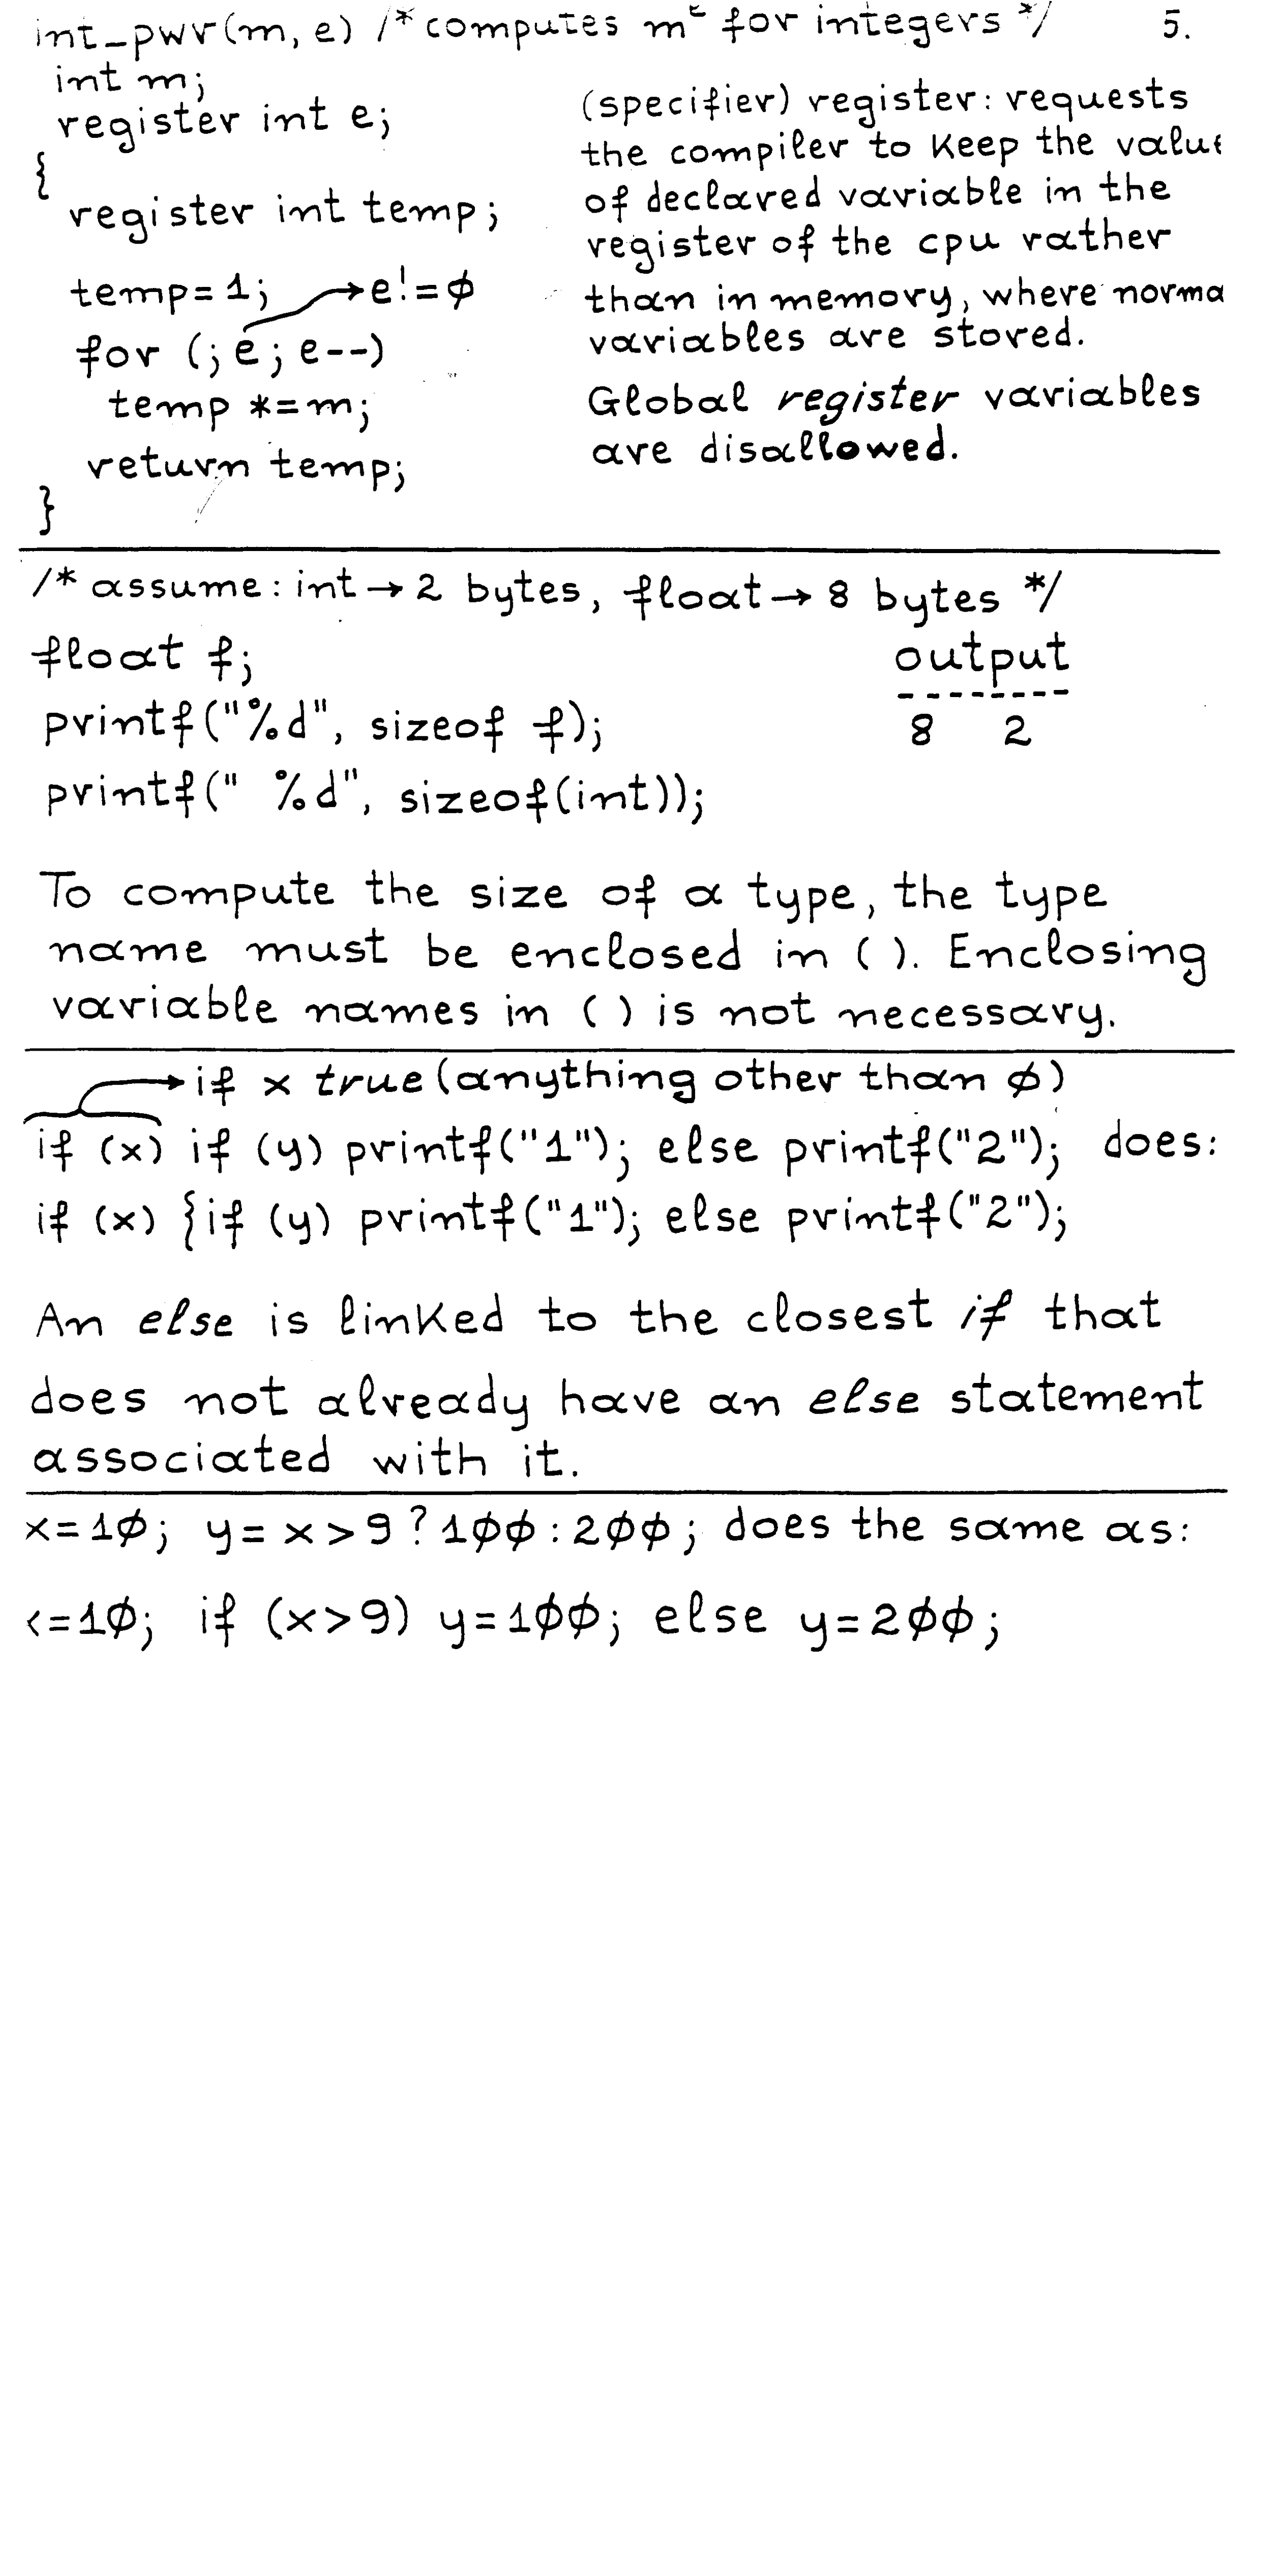 int_pwr(m, e) /* computes mᵉ for integers */ 5.
int m;
register int e;
{
register int temp;
temp=1; →e!=ø
for (;e;e--)
temp *=m;
return temp;
}
(specifier) register: requests
the compiler to keep the value
of declared variable in the
register of the cpu rather
than in memory, where norma
variables are stored.
Global register variables
are disallowed.
/* assume: int→2 bytes, float→8 bytes */
float f;
printf("%d", sizeof f);
printf(" %d", sizeof(int));
output
--------
8 2
To compute the size of a type, the type
name must be enclosed in ( ). Enclosing
variable names in ( ) is not necessary.
→if x true (anything other than ø)
if (x) if (y) printf("1"); else printf("2"); does:
if (x) {if (y) printf("1"); else printf("2");
An else is linked to the closest if that
does not already have an else statement
associated with it.
x=1ø; y=x>9?1øø:2øø; does the same as:
<=1ø; if (x>9) y=1øø; else y=2øø;